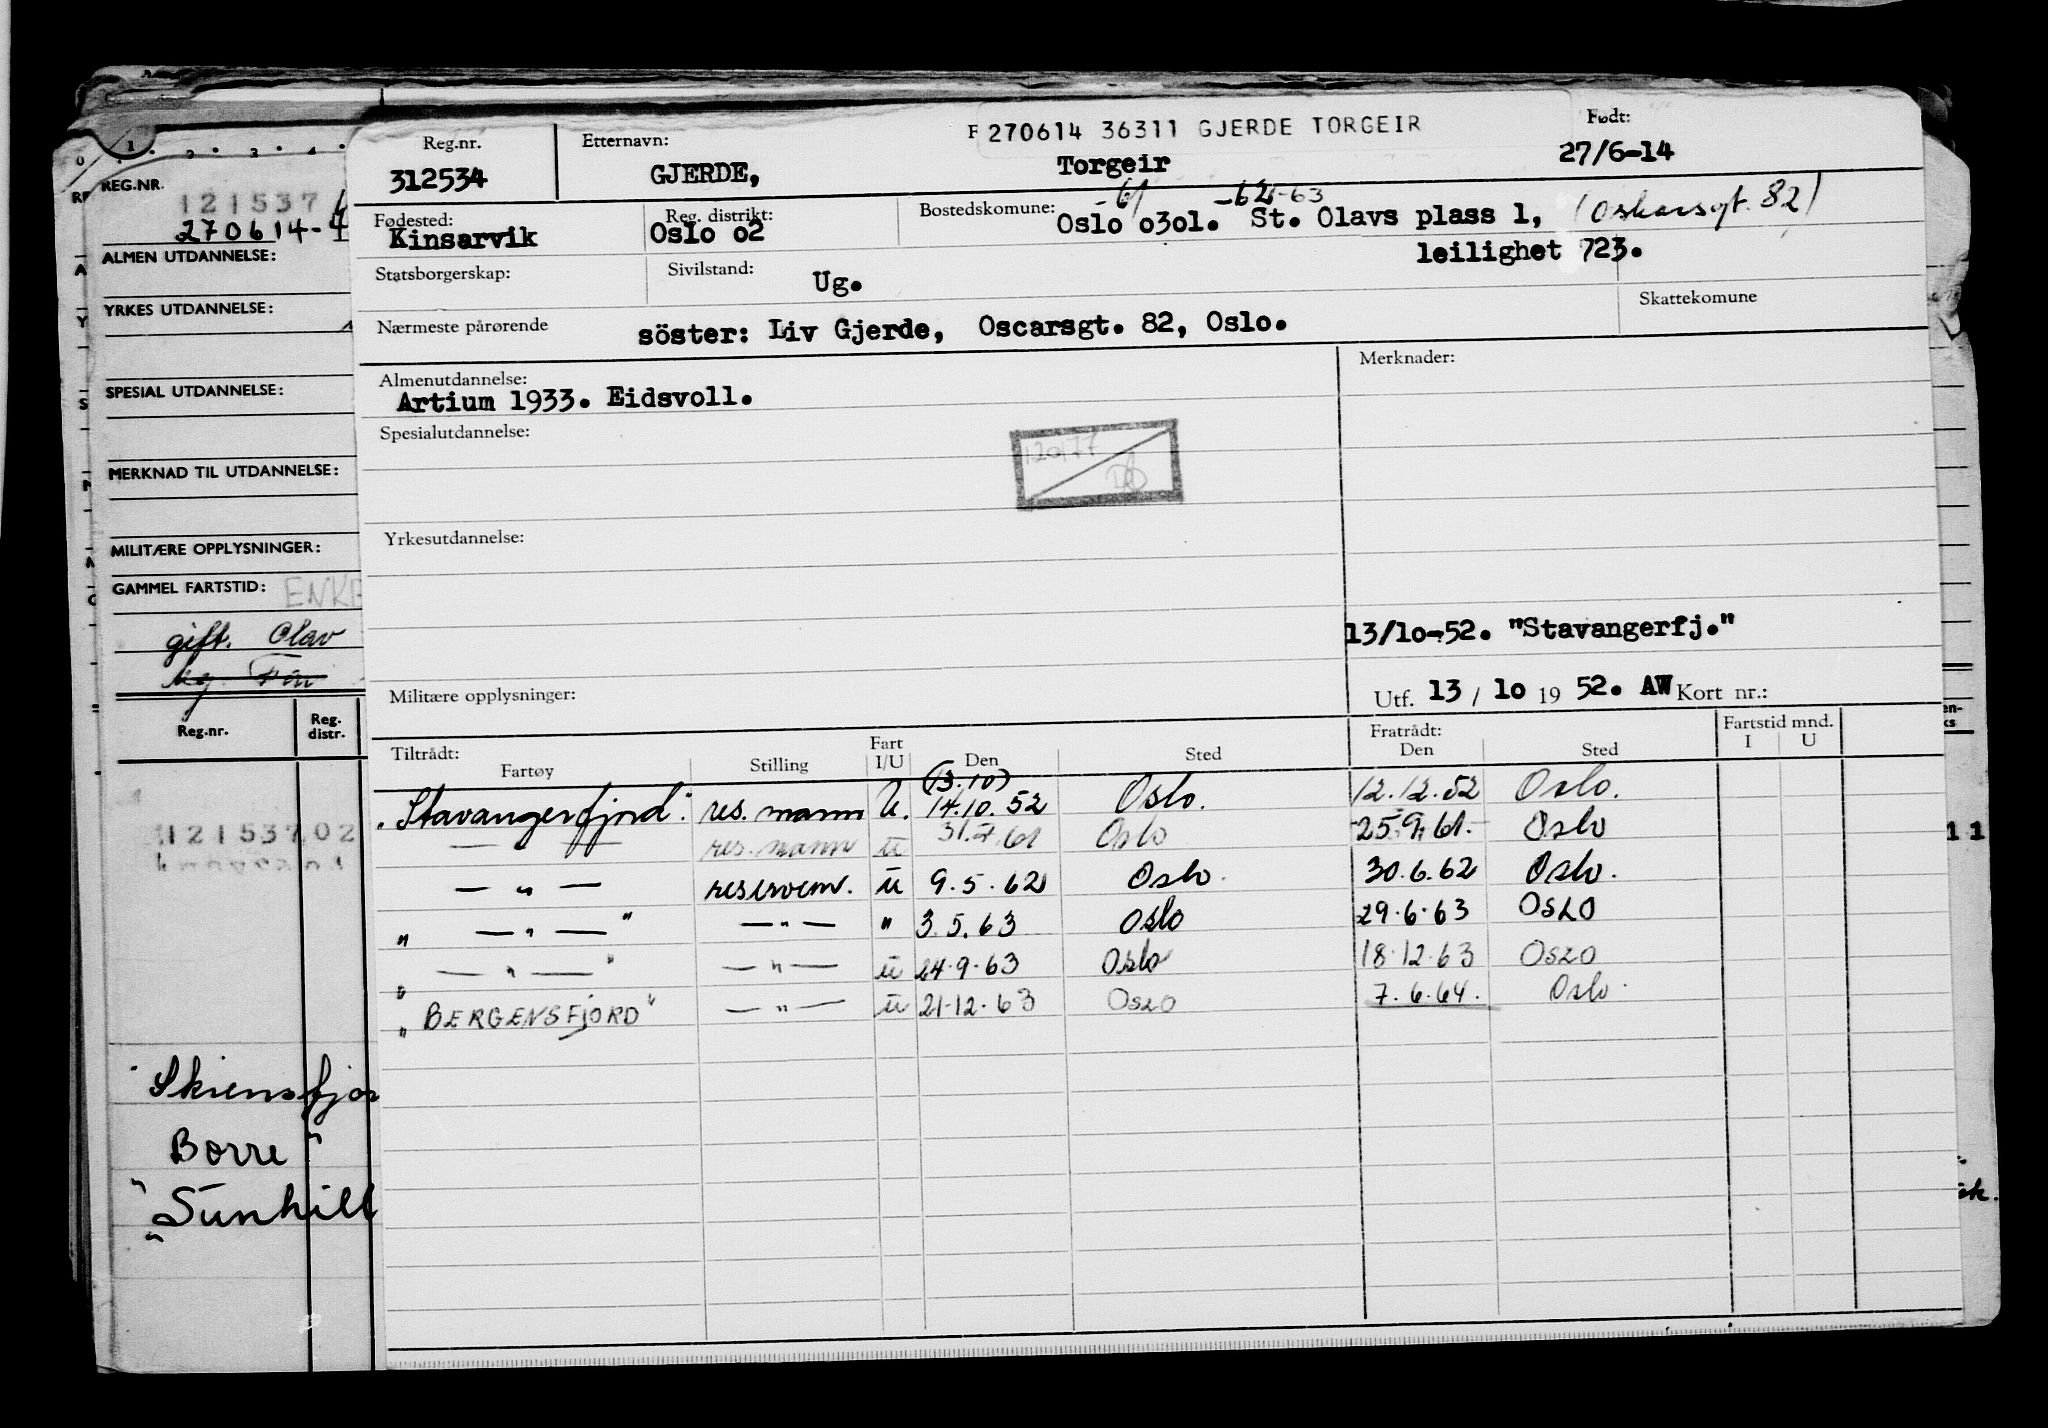 F 270614 36311 GJERDE TORGEIR
Reg.nr. Etternavn: Født:
312534 GJERDE, Torgeir 27/6-14
-61 -62-63
Fødested: Reg. distrikt: Bostedskomune:
Kinsarvik Oslo o2 Oslo o3ol. St. Olavs plass 1, (Oskarsgt. 82)
leilighet 723.
Statsborgerskap: Sivilstand: Ug.
Skattekomune
Nærmeste pårørende söster: Liv Gjerde, Oscarsgt. 82, Oslo.
Almenutdannelse: Merknader:
Artium 1933. Eidsvoll.
Spesialutdannelse:
Yrkesutdannelse:
13/lo-52. "Stavangerfj."
Militære opplysninger: Utf. 13 / lo 19 52. AW Kort nr.:
Tiltrådt: Fratrådt: Fartstid mnd.
Fartøy Stilling Fart I/U Den Sted Den Sted I U
(13.10)
"Stavangerfjord". res. mann U. 14.10.52 Oslo. 12.12.52 Oslo.
— " — res. mann U 31.7.61 Oslo 25.9.61. Oslo
— " — reservem. U 9.5.62 Oslo. 30.6.62 Oslo.
" — " — " — " — " 3.5.63 Oslo 29.6.63 OSLO
" — " — " — " — U 24.9.63 Oslo 18.12.63 OSLO
"BERGENSFJORD" — " — U 21.12.63 OSLO 7.6.64. Oslo.
0 1 2 3 4
REG.NR.
121537
270614-4
ALMEN UTDANNELSE:
YRKES UTDANNELSE:
SPESIAL UTDANNELSE:
MERKNAD TIL UTDANNELSE:
MILITÆRE OPPLYSNINGER:
GAMMEL FARTSTID: ENKE
gift. Olav
ug. Far
Reg.nr. Reg. distr.
121537 02
"Skiensfjor
Borre"
"Sunhill
11
sk.